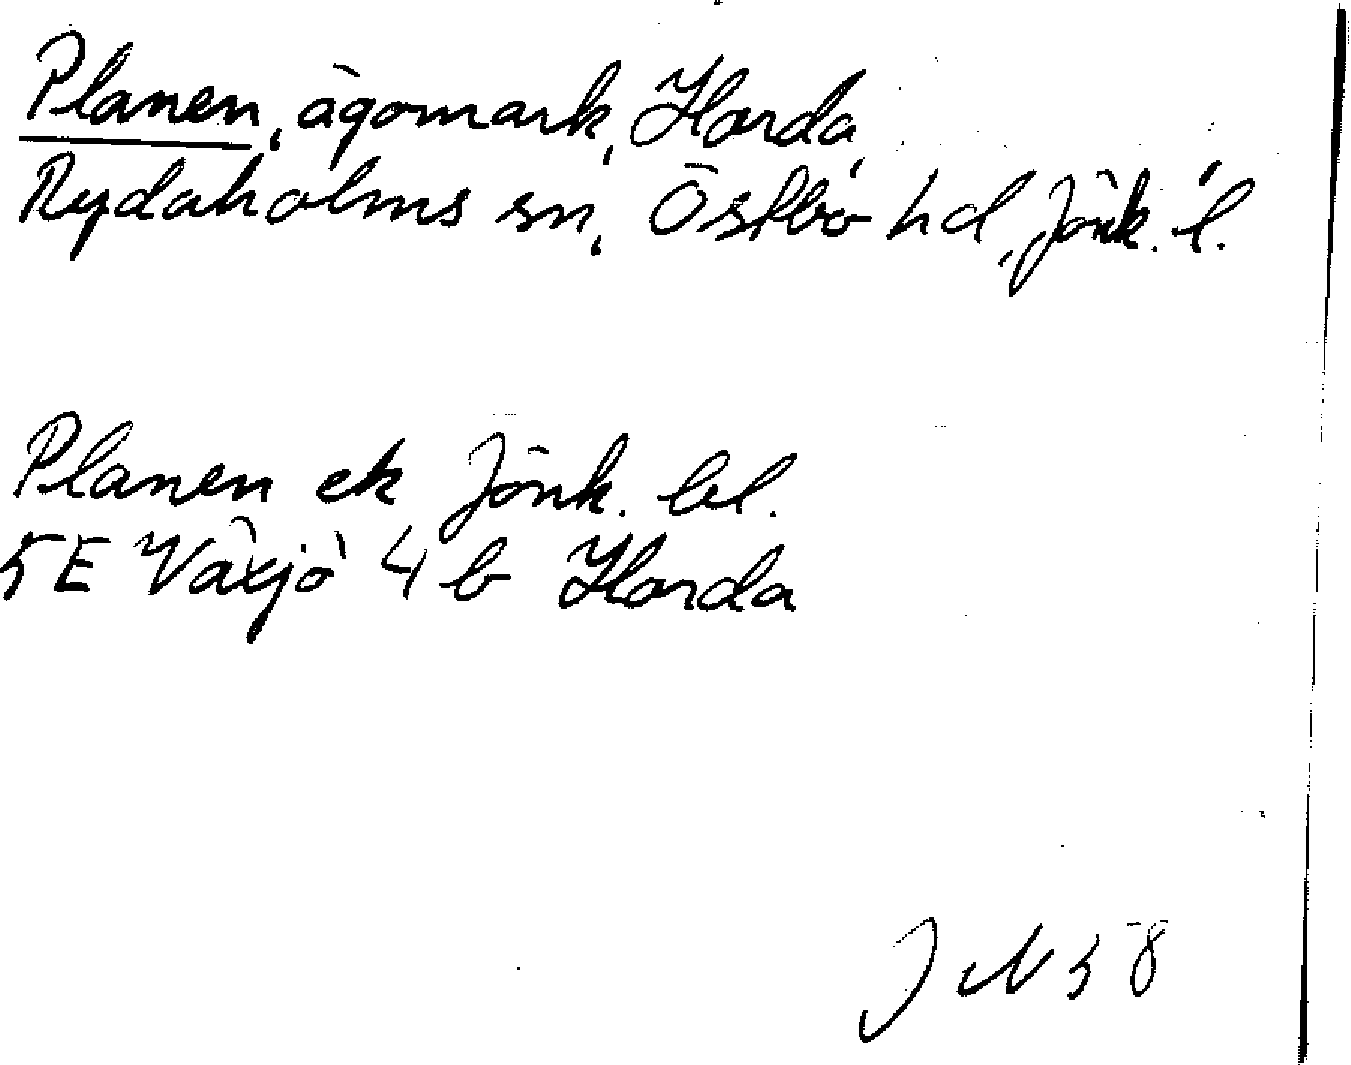 Planen, ägomark, Horda,
Rydaholms sn, Östbo hd, Jönk. l.
Planen ek Jönk. bl.
5E Växjö 4 b Horda